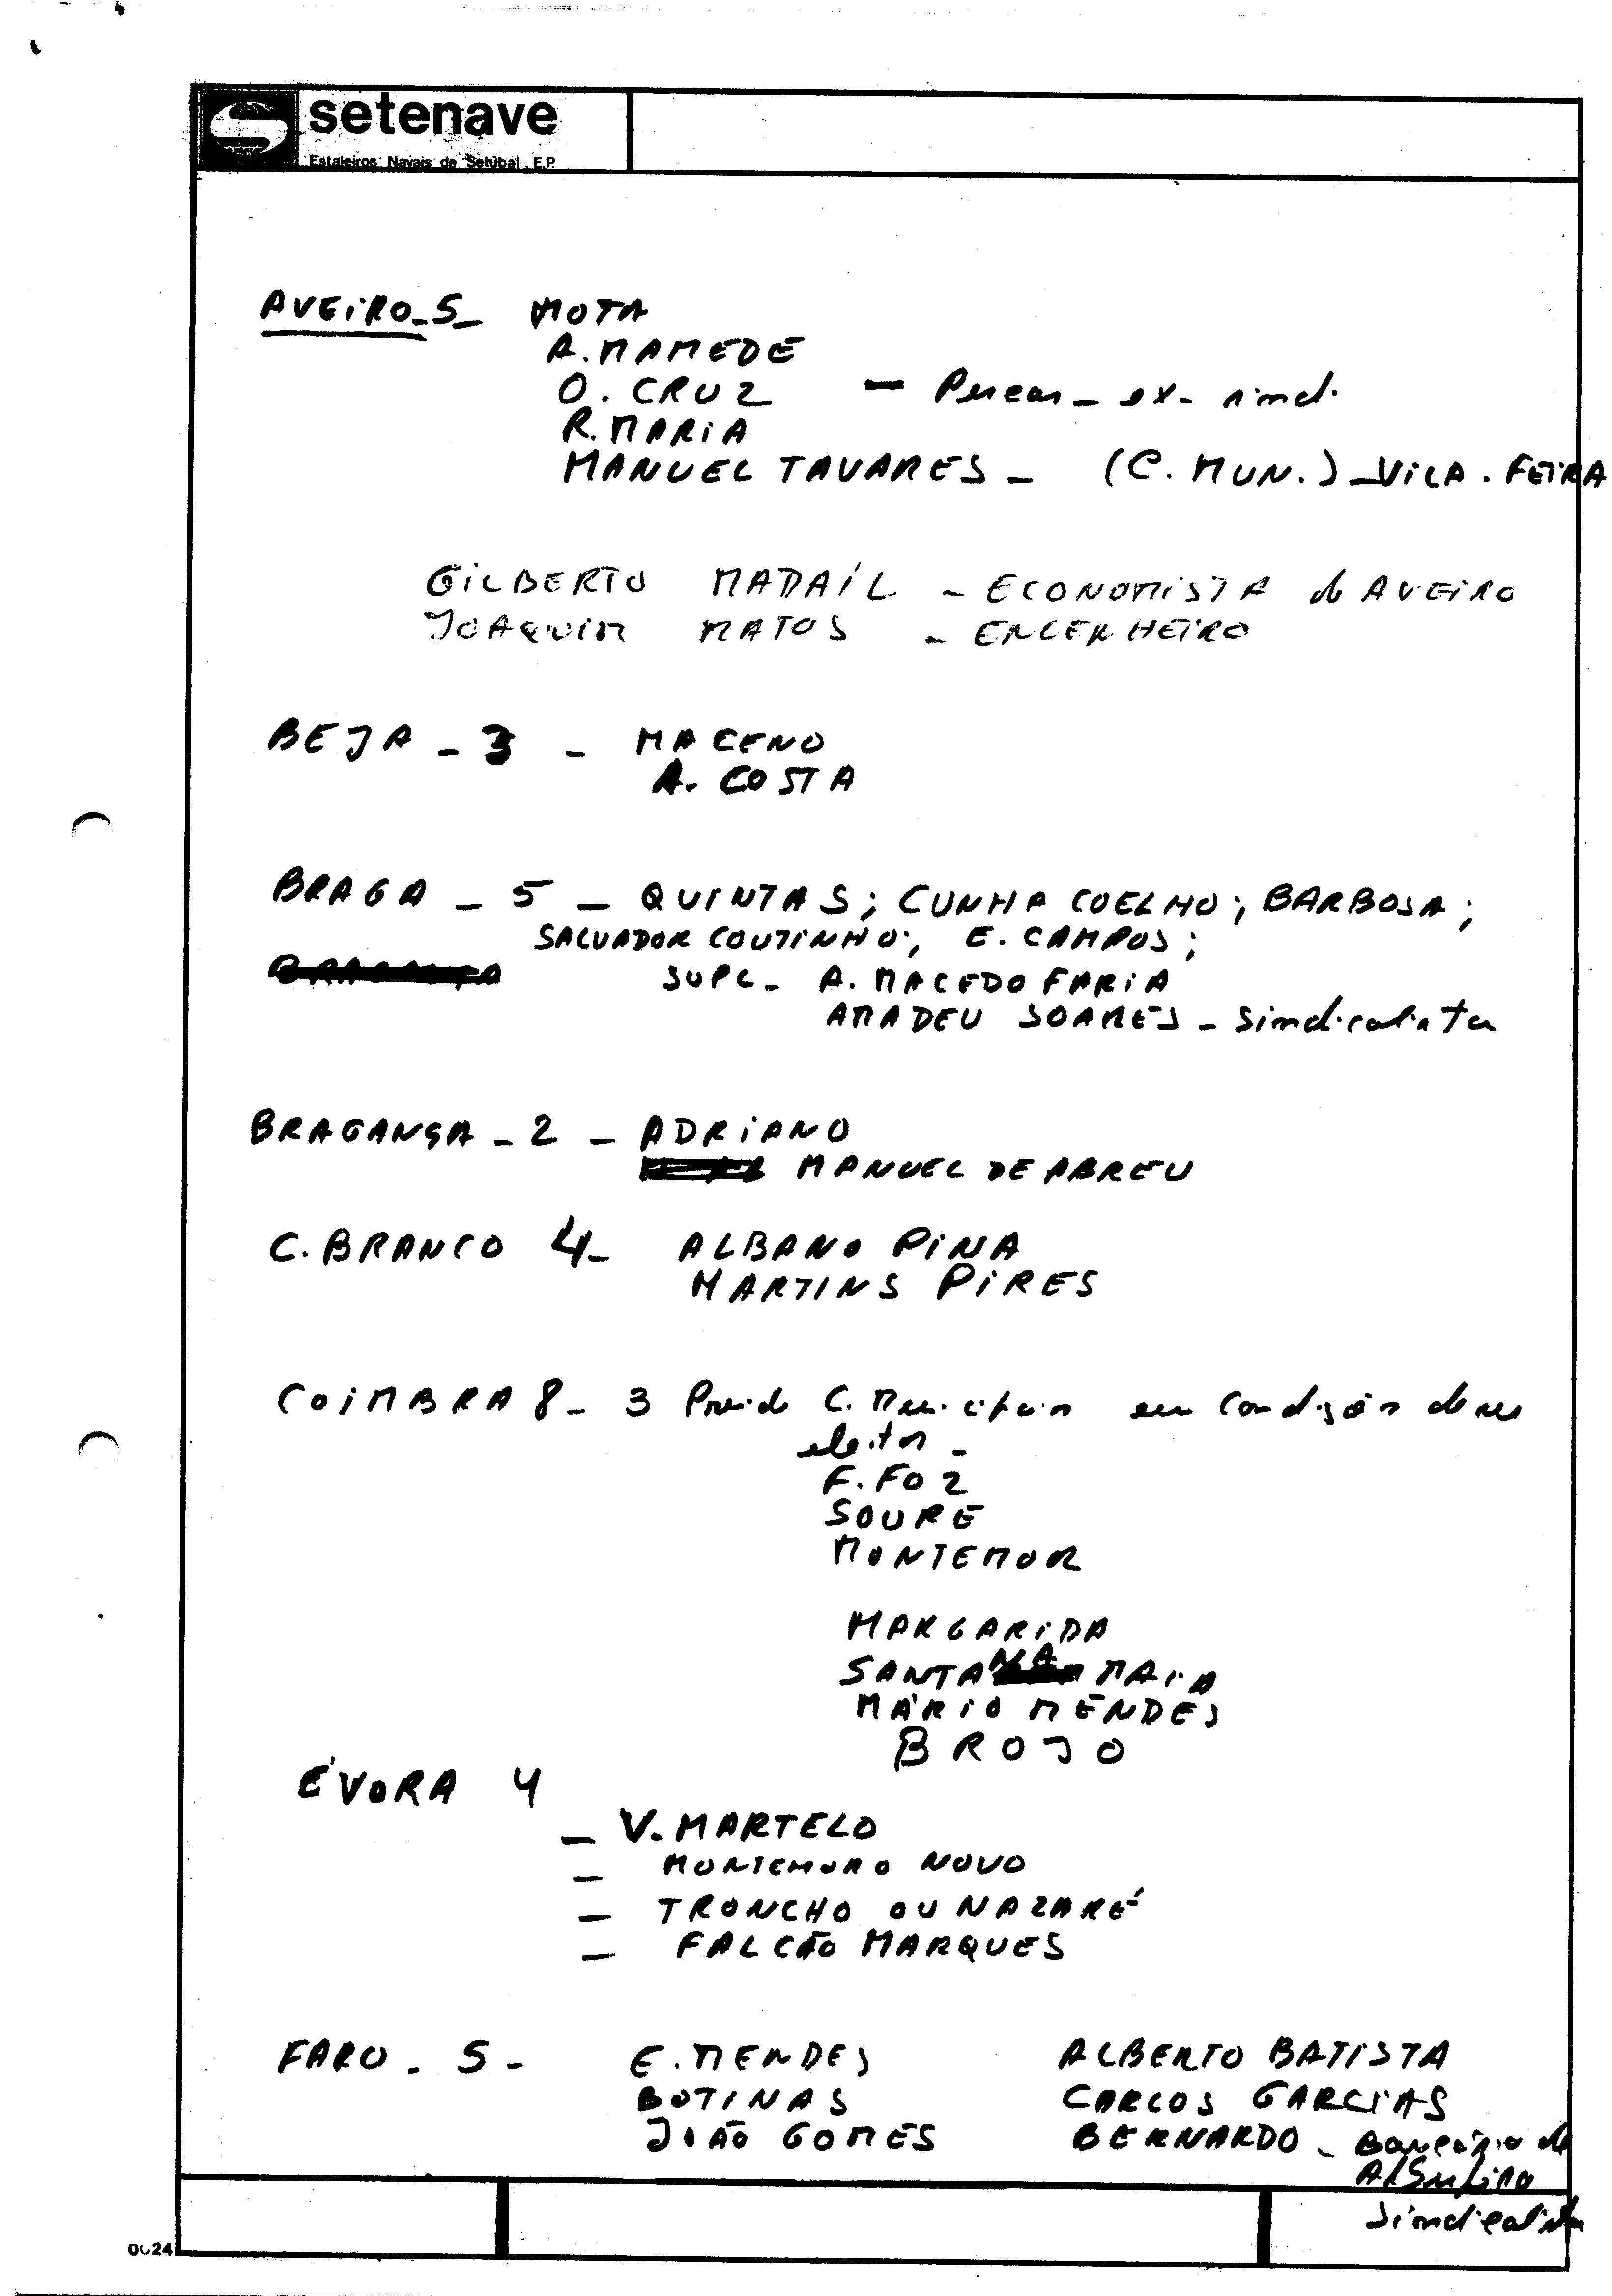 setenave
Estaleiros Navais de Setúbal, E.P.
AVEIRO - 5 - MOTA
A. MAMEDE
O. CRUZ - Pescas - ex- sind.
R. MARIA
MANUEL TAVARES - (C. MUN.) - VILA . FEIRA
GILBERTO MADAÍL - ECONOMISTA de AVEIRO
JOAQUIM MATOS - ENGENHEIRO
BEJA - 3 - MACENO
A. COSTA
BRAGA - 5 - QUINTAS; CUNHA COELHO; BARBOSA;
SALVADOR COUTINHO; E. CAMPOS;
SUPL - A. MACEDO FARIA
AMADEU SOARES - Sindicalista
BRAGANÇA - 2 - ADRIANO
MANUEL DE ABREU
C. BRANCO 4 - ALBANO PINA
MARTINS PIRES
COIMBRA 8 - 3 Presid C. Municipais em condições de ser
eleitos -
F. FOZ
SOURE
MONTEMOR
MARGARIDA
SANTANA MAIA
MÁRIO MENDES
BROJO
ÉVORA 4
- V. MARTELO
- MONTEMORO NOVO
- TRONCHO OU NAZARÉ
- FALCÃO MARQUES
FARO - 5 - E. MENDES ALBERTO BATISTA
BOTINAS CARLOS GARCIAS
JOÃO GOMES BERNARDO - Bancário de
Albufeira
Sindicalista